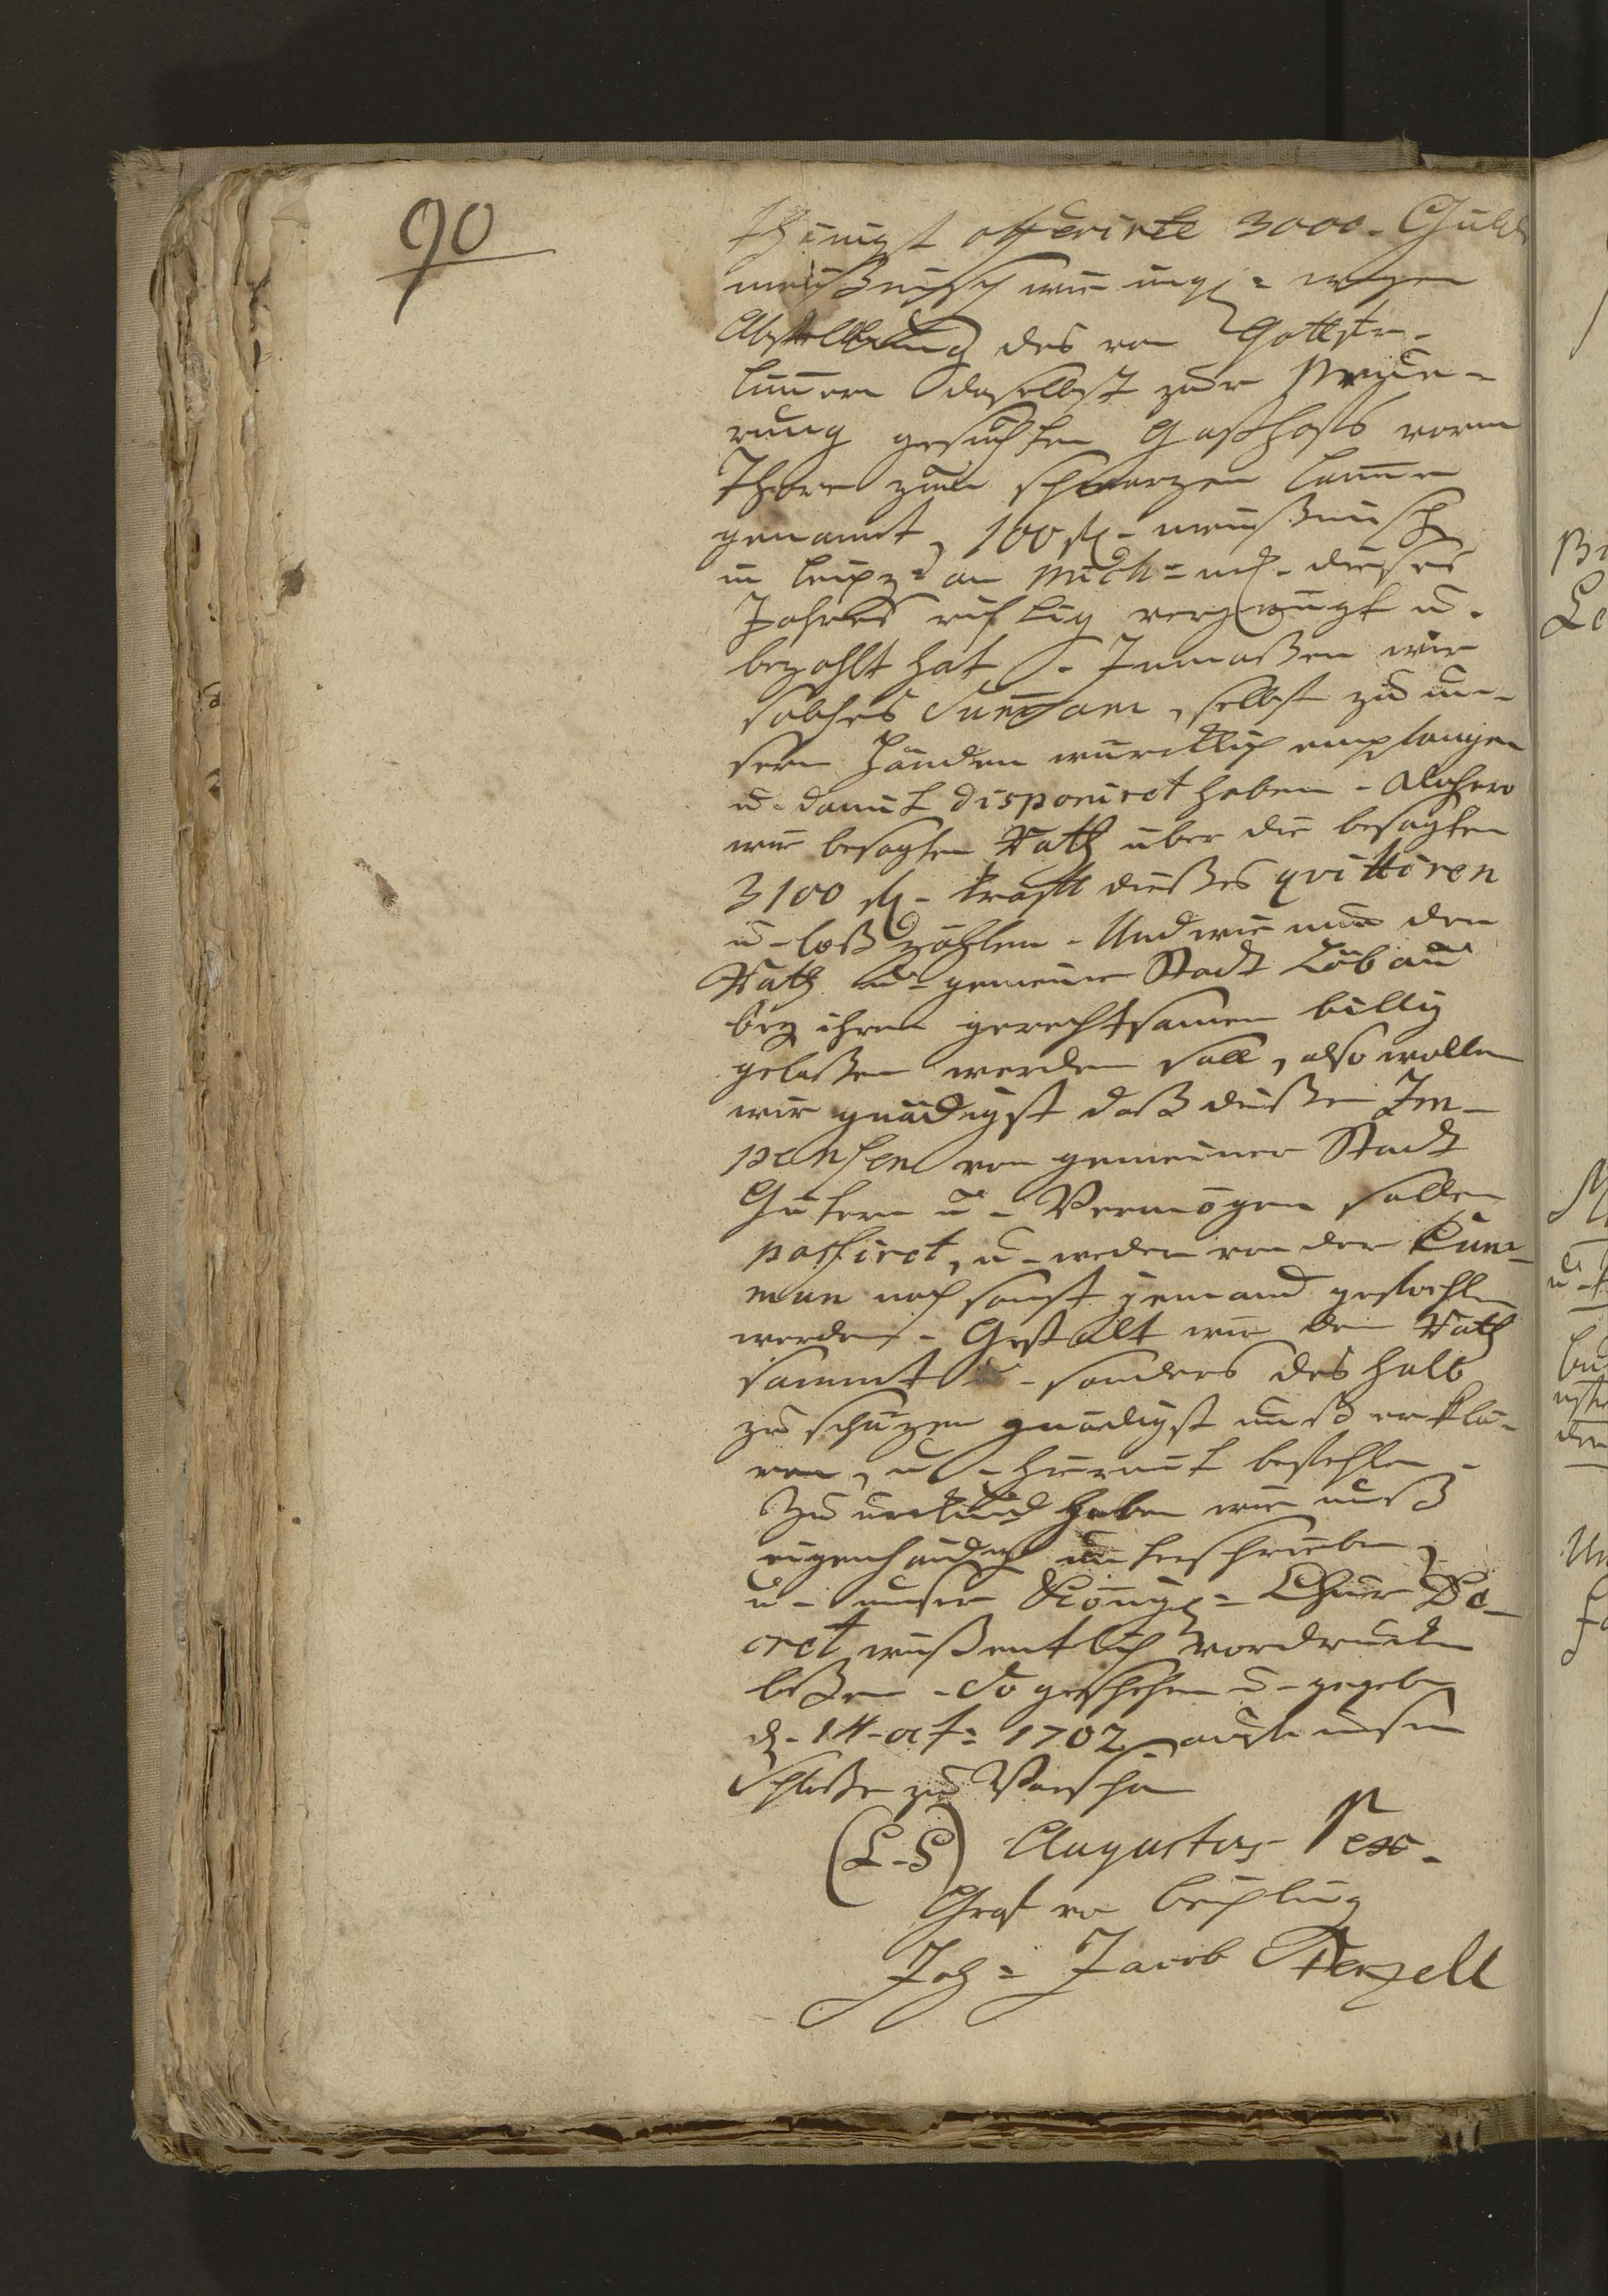 90
thänigst offerirte 3000 - Guld
meißnisch wie ingl= wegen
Abstellung des von
daselbst zur
rung gesuchten Gasthofs vorm
Thore zum schwarzen Lamm
genannt, 100 fl - meißnisch
in Leipz= an Mich= mß - dieses
Jahres richtig vergnügt u -
bezahlt hat - Inmaßen wir
solches Summam, selbst zu un-
sern Händen würcklich empfangen
u - damit disponiret haben - Dahero
wir besagten Rath über die besagten
3100 fl - krafft dießes qvittiren
u - loß zählen - Und wie nun der
Rath u - gemeine Stadt Löbau
bey ihren gerechtsamen billig
gelaßen werden soll, also wollen
wir gnädigst daß dießer Im-
pensen von gemeiner Stadt
Gütern u - Vermögen sollen
passiret, u - weder von der Com-
mun noch sonst jemand gefochten
werden - Gestalt wir den Rath
sammt u - sonders deshalb
zu schüzen gnädigst unß erklä-
ren, u - hiermit befehlen -
Zu urkund haben wir unß
eigenhändig unterschrieben,
u - unser Königl= Chur Se-
cret wißentlich vordrucken
laßen - So geschehen u - gegeben
d - 14 - oct= 1702 auf unserm
Schloße zu Warschau
(L - S) Augustus Rex -
Graf von Beichling
Joh= Jacob